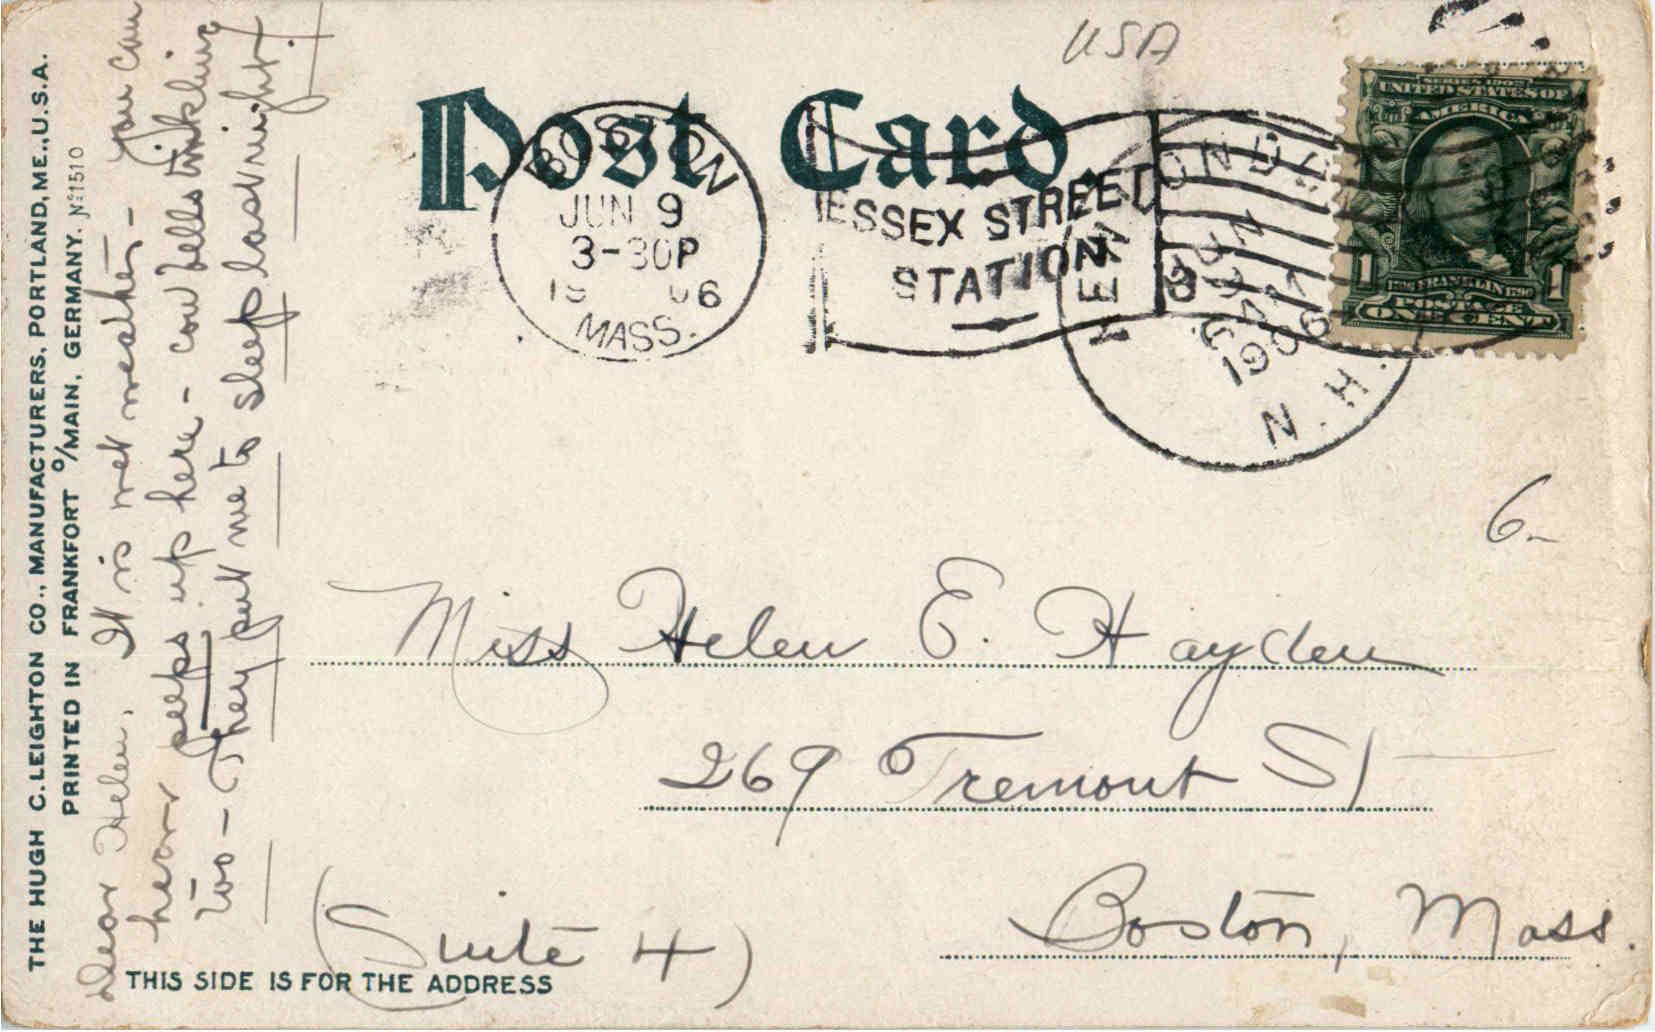 USA
Post Card.
BOSTON
JUN 9
3-30P
1906
MASS.
ESSEX STREET
STATION
N.H.
JUN
9
AM
1906
SERIES 1902
UNITED STATES OF
AMERICA
1 FRANKLIN 1
POSTAGE
ONE CENT
6-
Miss Helen E. Hayden
269 Tremont St
Boston, Mass.
(Suite 4)
THIS SIDE IS FOR THE ADDRESS
THE HUGH C. LEIGHTON CO., MANUFACTURERS, PORTLAND, ME., U.S.A.
PRINTED IN FRANKFORT o/MAIN, GERMANY. No 1510
Dear Helen, It is wet weather - You can
hear peeps up here - cow bells tinkling
too - They put me to sleep last night.